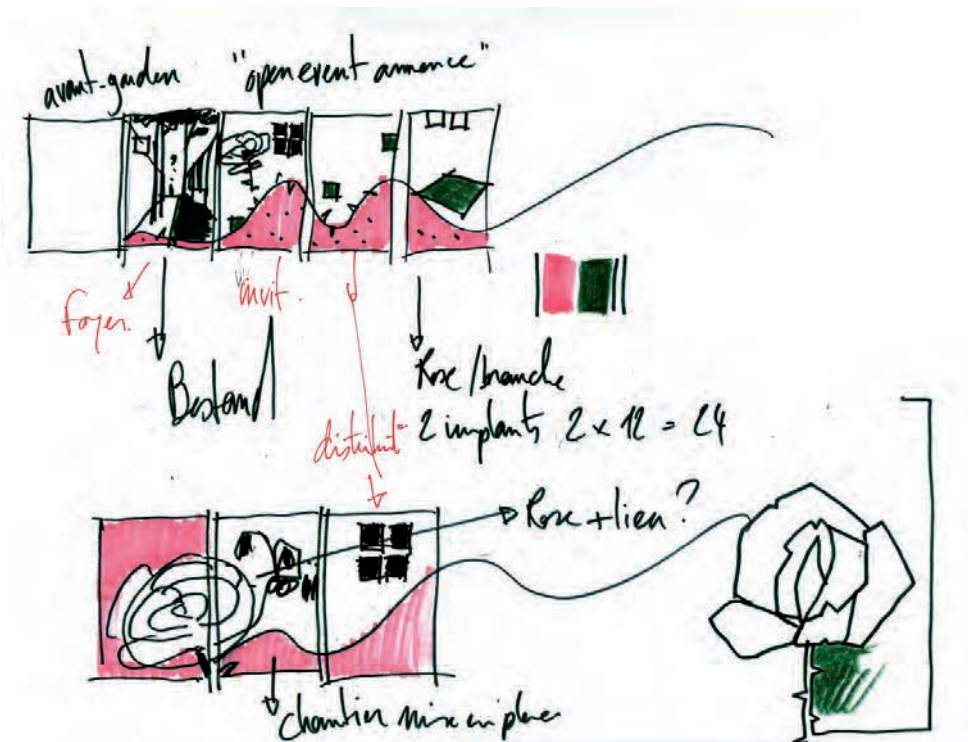 avant-garden "open event annonce"
foyer.
invit.
Bestand
Rose/branche
2 implants 2 x 12 = 24
distribut°
Rose + lien ?
chantier mise en place